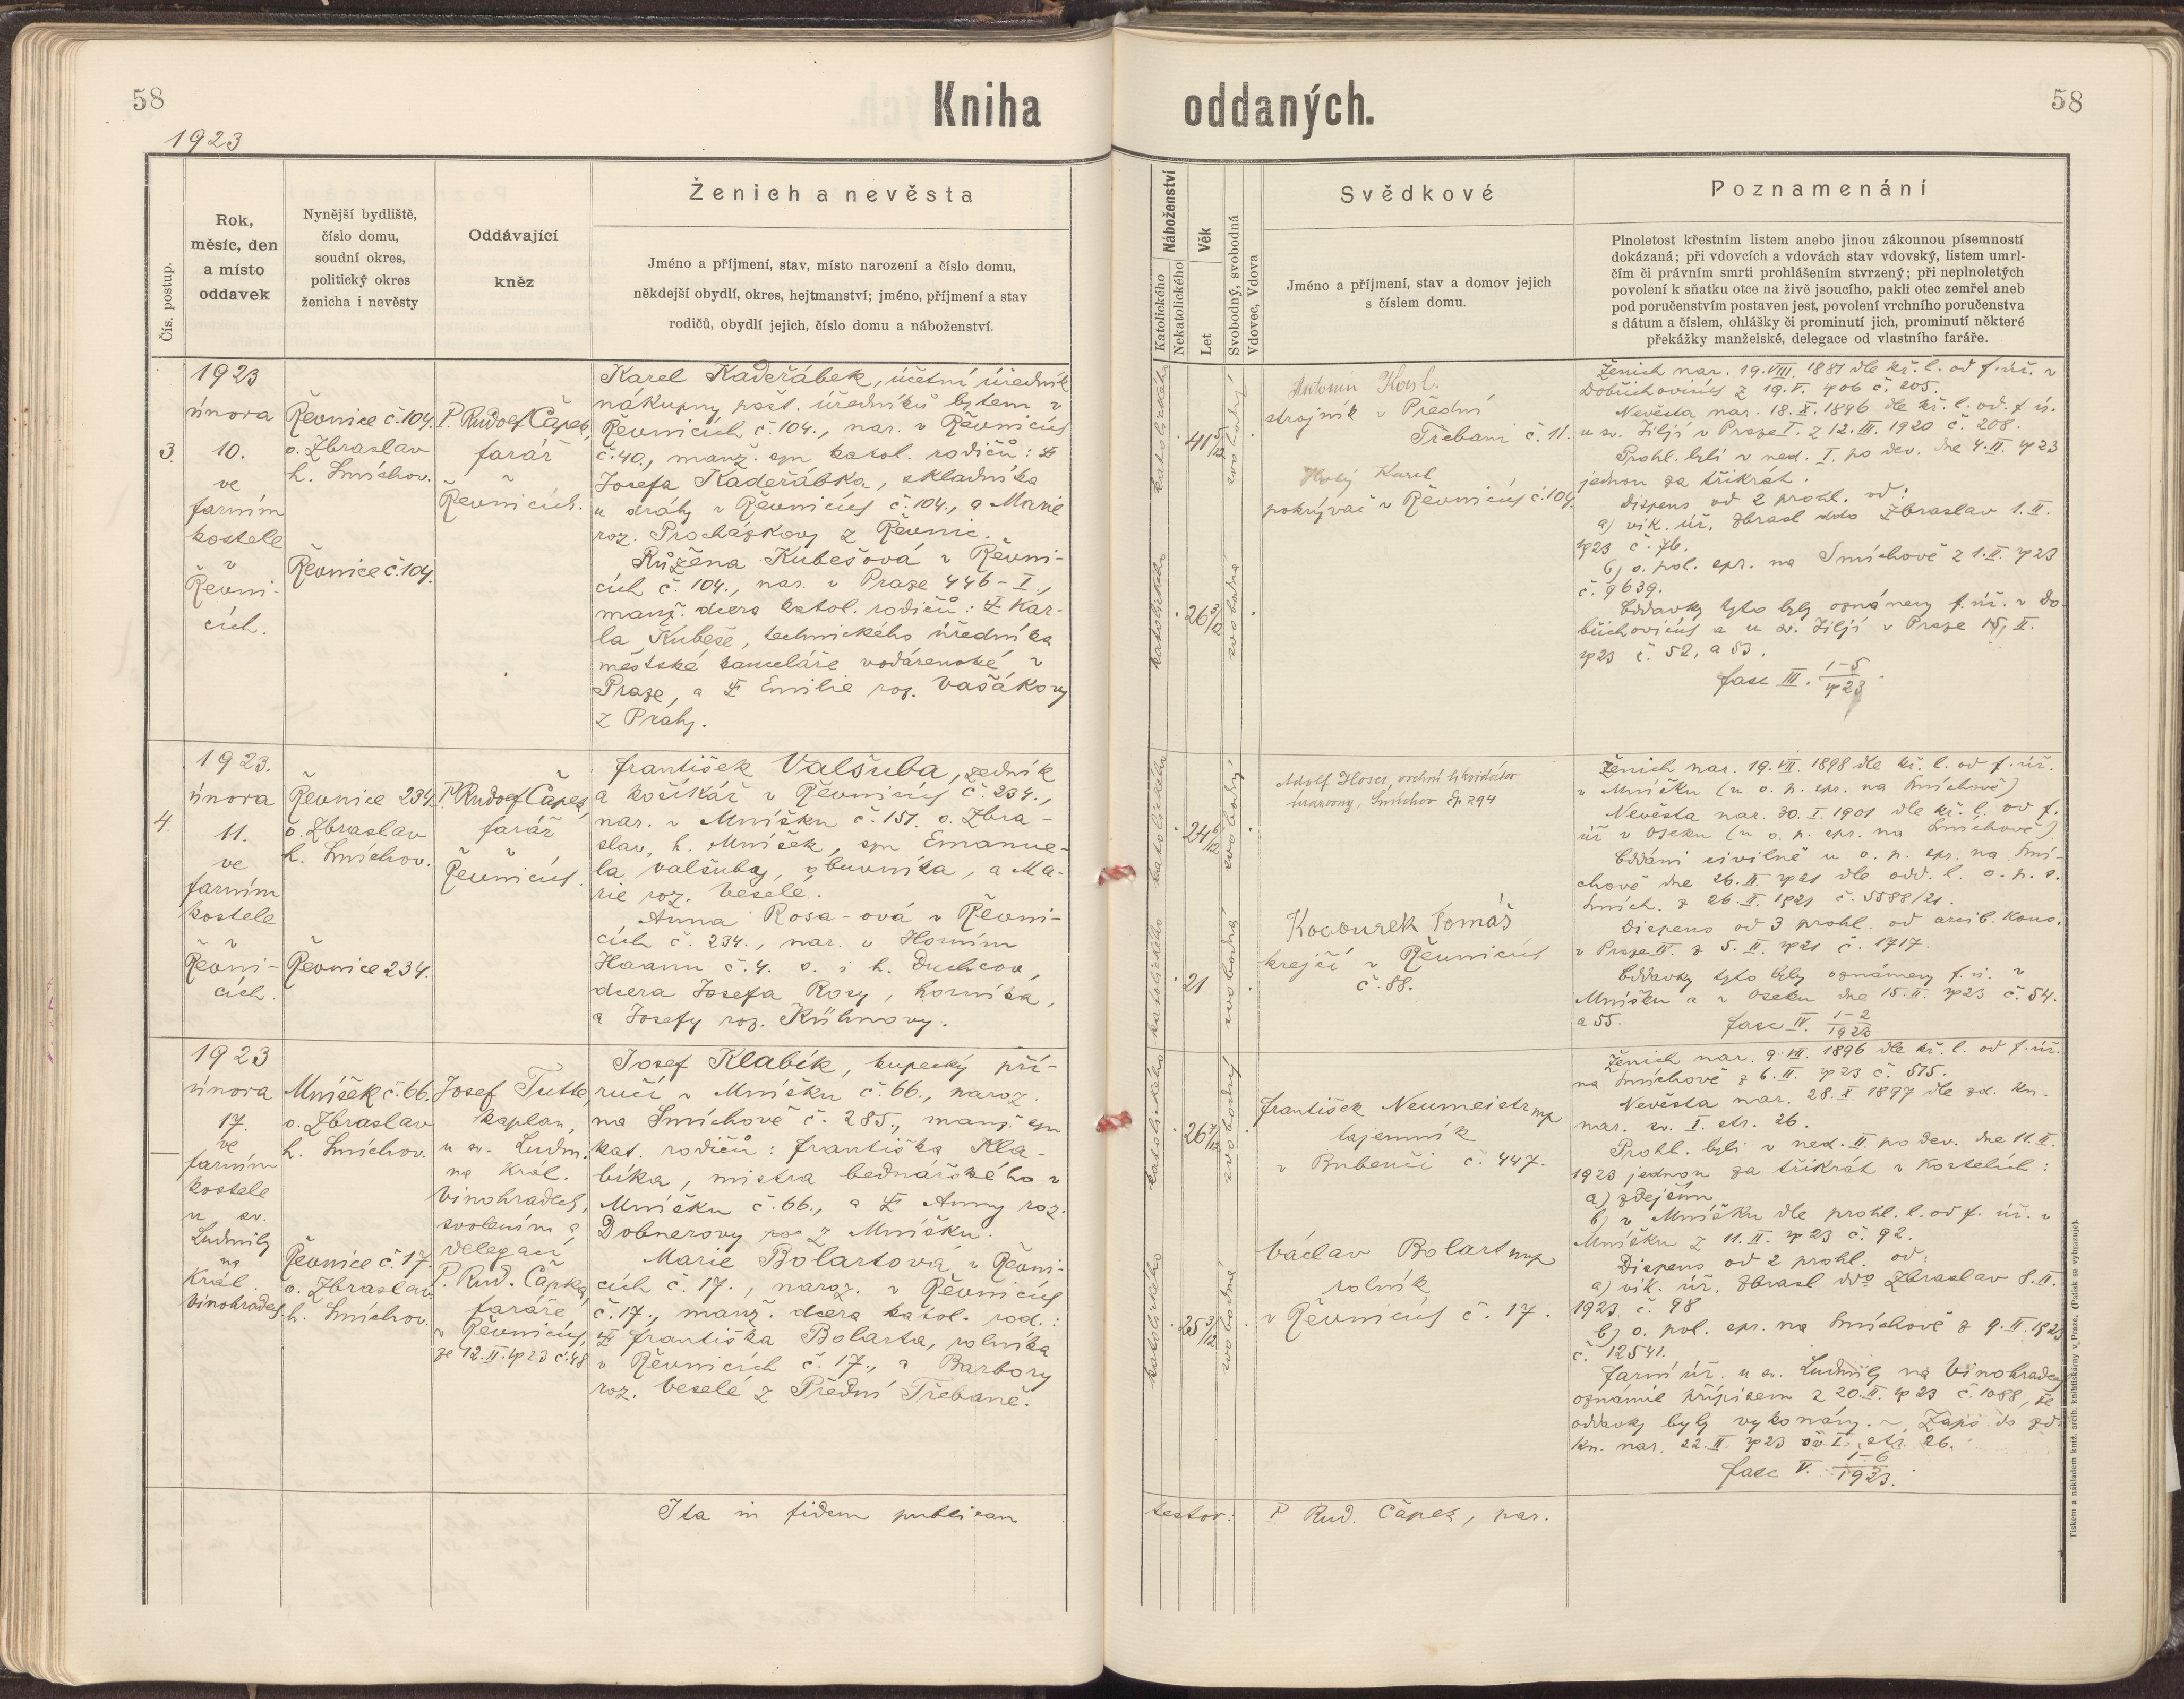 58
Kniha
oddaných.
58
1923
Čís. postup.
Rok,
měsíc, den
a místo
oddavek
Nynější bydliště,
číslo domu,
soudní okres,
politický okres
ženicha i nevěsty
Oddávající
kněz
Ženich a nevěsta
Jméno a příjmení, stav, místo narození a číslo domu,
někdejší obydlí, okres, hejtmanství; jméno, příjmení a stav
rodičů, obydlí jejich, číslo domu a náboženství.
Náboženství
Katolického
Nekatolického
Věk
Let
Svobodný, svobodná
Vdovec, Vdova
Svědkové
Jméno a příjmení, stav a domov jejich
s číslem domu.
Poznamenání
Plnoletost křestním listem anebo jinou zákonnou písemností
dokázaná; při vdovcích a vdovách stav vdovský, listem umrl-
čím či právním smrti prohlášením stvrzený; při neplnoletých
povolení k sňatku otce na živě jsoucího, pakli otec zemřel aneb
pod poručenstvím postaven jest, povolení vrchního poručenstva
s dátum a číslem, ohlášky či prominutí jich, prominutí některé
překážky manželské, delegace od vlastního faráře.
3.
1923
února
10.
ve
farním
kostele
v
Řevni-
cích.
Řevnice č. 104.
o. Zbraslav
h. Smíchov.
Řevnice č. 104.
P. Rudolf Čapek,
farář
v
Řevnicích.
Karel Kadeřábek, účetní úředník
nákupny pošt. úředníků bytem v
Řevnicích č. 104., nar. v Řevnicích
č. 40., manž. syn katol. rodičů: †
Josefa Kadeřábka, skladníka
u dráhy v Řevnicích č. 104., a Marie
roz. Procházkovy z Řevnic.
Růžena Kubešová v Řevni-
cích č. 104., nar. v Praze 446-I.,
manž. dcera katol. rodičů: † Kar-
la Kubeše, technického úředníka
městské kanceláře vodárenské v
Praze, a † Emilie roz. Vašákovy
z Prahy.
katolického
41 5/12
svobodný
katolického
26 3/12
svobodná
Antonín Karl.
strojník v Přední
Třebani č. 11.
Karel
pokrývač v Řevnicích č. 104.
Ženich nar. 19. VIII. 1881 dle kř. l. od f. úř. v
Dobřichovicích z 19. V. 1906 č. 205.
Nevěsta nar. 18. X. 1896 dle kř. l. od. f. ú.
u sv. Jiljí v Praze I. z 12. III. 1920 č. 208.
Prohl. byli v ned. I. po dev. dne 4. II. 1923
jednou za třikrát.
Dispens od 2 prohl. od:
a) vik. úř. zbrasl ddo Zbraslav 1. II.
1923 č. 76.
b) o. pol. spr. na Smíchově z 1. II. 1923
č. 9639.
Oddavky tyto byly oznámeny f. úř. v Do-
břichovicích a u sv. Jiljí v Praze 15. II.
1923 č. 52, a 53.
fasc III. 1-5/1923
4.
1923.
února
11.
ve
farním
kostele
v
Řevni-
cích.
Řevnice 234
o. Zbraslav
h. Smíchov.
Řevnice 234.
P. Rudolf Čapek,
farář
v
Řevnicích.
František Valšuba, zedník
a košíkář v Řevnicích č. 234.,
nar. v Mníšku č. 151. o. Zbra-
slav, h. Mníšek, syn Emanue-
la Valšuby, obuvníka, a Ma-
rie roz. Veselé.
Anna Rosa-ová v Řevni-
cích č. 234., nar. v Horním
Haanu č. 4. o. i h. Duchcov,
dcera Josefa Rosy, horníka,
a Josefy roz. Kühnovy.
katolického
24 6/12
svobodný
katolického
21
svobodná
Adolf Hoser, vrchní likvidátor
Smíchov čp 294
Kocourek Tomáš
krejčí v Řevnicích
č. 88.
Ženich nar. 19. VII. 1898 dle kř. l. od f. úř.
v Mníšku (u o. p. spr. na Smíchově)
Nevěsta nar. 30. I. 1901 dle kř. l. od f.
úř v Oseku (u o. p. spr. na Smíchově).
Oddáni civilně u o. p. spr. na Smí-
chově dne 26. II. 1921 dle odd. l. o. p. s.
Smích. z 26. II. 1921 č. 5588/21.
Dispens od 3 prohl. od arcib. kons.
v Praze IV. z 5. II. 1921 č. 1717.
Oddavky tyto byly oznámeny f. ú. v
Mníšku a v Oseku dne 15. II. 1923 č. 54.
a 55. fasc IV. 1-2/1923
1923
února
17.
ve
farním
kostele
u sv.
Ludmily
na
Král.
Vinohradech.
Mníšek č. 66.
o. Zbraslav
h. Smíchov.
Řevnice č. 17.
o. Zbraslav
h. Smíchov.
Josef Tutte,
kaplan,
u sv. Ludm.
na Král.
Vinohradech,
svolením a
delegací
P. Rud. Čapka,
faráře
v Řevnicích,
ze 12. II. 1923 č. 48
Josef Klabík, kupecký pří-
ručí v Mníšku č. 66., naroz.
na Smíchově č. 285., manž. syn
kat. rodičů: Františka Kla-
bíka, mistra bednářského v
Mníšku č. 66., a † Anny roz.
Dobnerovy z Mníšku.
Marie Bolartová v Řevni-
cích č. 17., naroz. v Řevnicích
č. 17., manž. dcera katol. rod.:
† Františka Bolarta, rolníka
v Řevnicích č. 17., a Barbory
roz. Veselé z Přední Třebaně.
katolického
26 7/12
svobodný
katolického
25 3/12
svobodná
František Neumeistr mp
tajemník
v Bubenči č. 447.
Václav Bolart mp
rolník
v Řevnicích č. 17.
Ženich nar. 9. VII. 1896 dle kř. l. od f. úř.
na Smíchově z 6. II. 1923 č. 515.
Nevěsta nar. 28. X. 1897 dle zd. kn.
nar. sv. I. str. 26.
Prohl. byli v ned. II. po dev. dne 11. II.
1923 jednou za třikrát v kostelích:
a) zdejším
b) v Mníšku dle prohl. l. od f. úř. v
Mníšku z 11. II. 1923 č. 92.
Dispens od 2 prohl. od:
a) vik. úř. zbrasl ddo Zbraslav 8. II.
1923 č. 98
b) o. pol. spr. na Smíchově z 9. II. 1923
č. 12541.
Farní úř. u sv. Ludmily na Vinohradech
oznámil přípisem z 20. II. 1923 č. 1088, že
oddavky byly vykonány. ~ Zaps do zd.
kn. nar. 22. II. 1923 sv I. str. 26.
fasc V. 1-6/1923.
Ita in fidem publicam
testor: P. Rud. Čapek, par.
Tiskem a nákladem kníž. arcib. knihtiskárny v Praze. (Patisk se vyhrazuje).